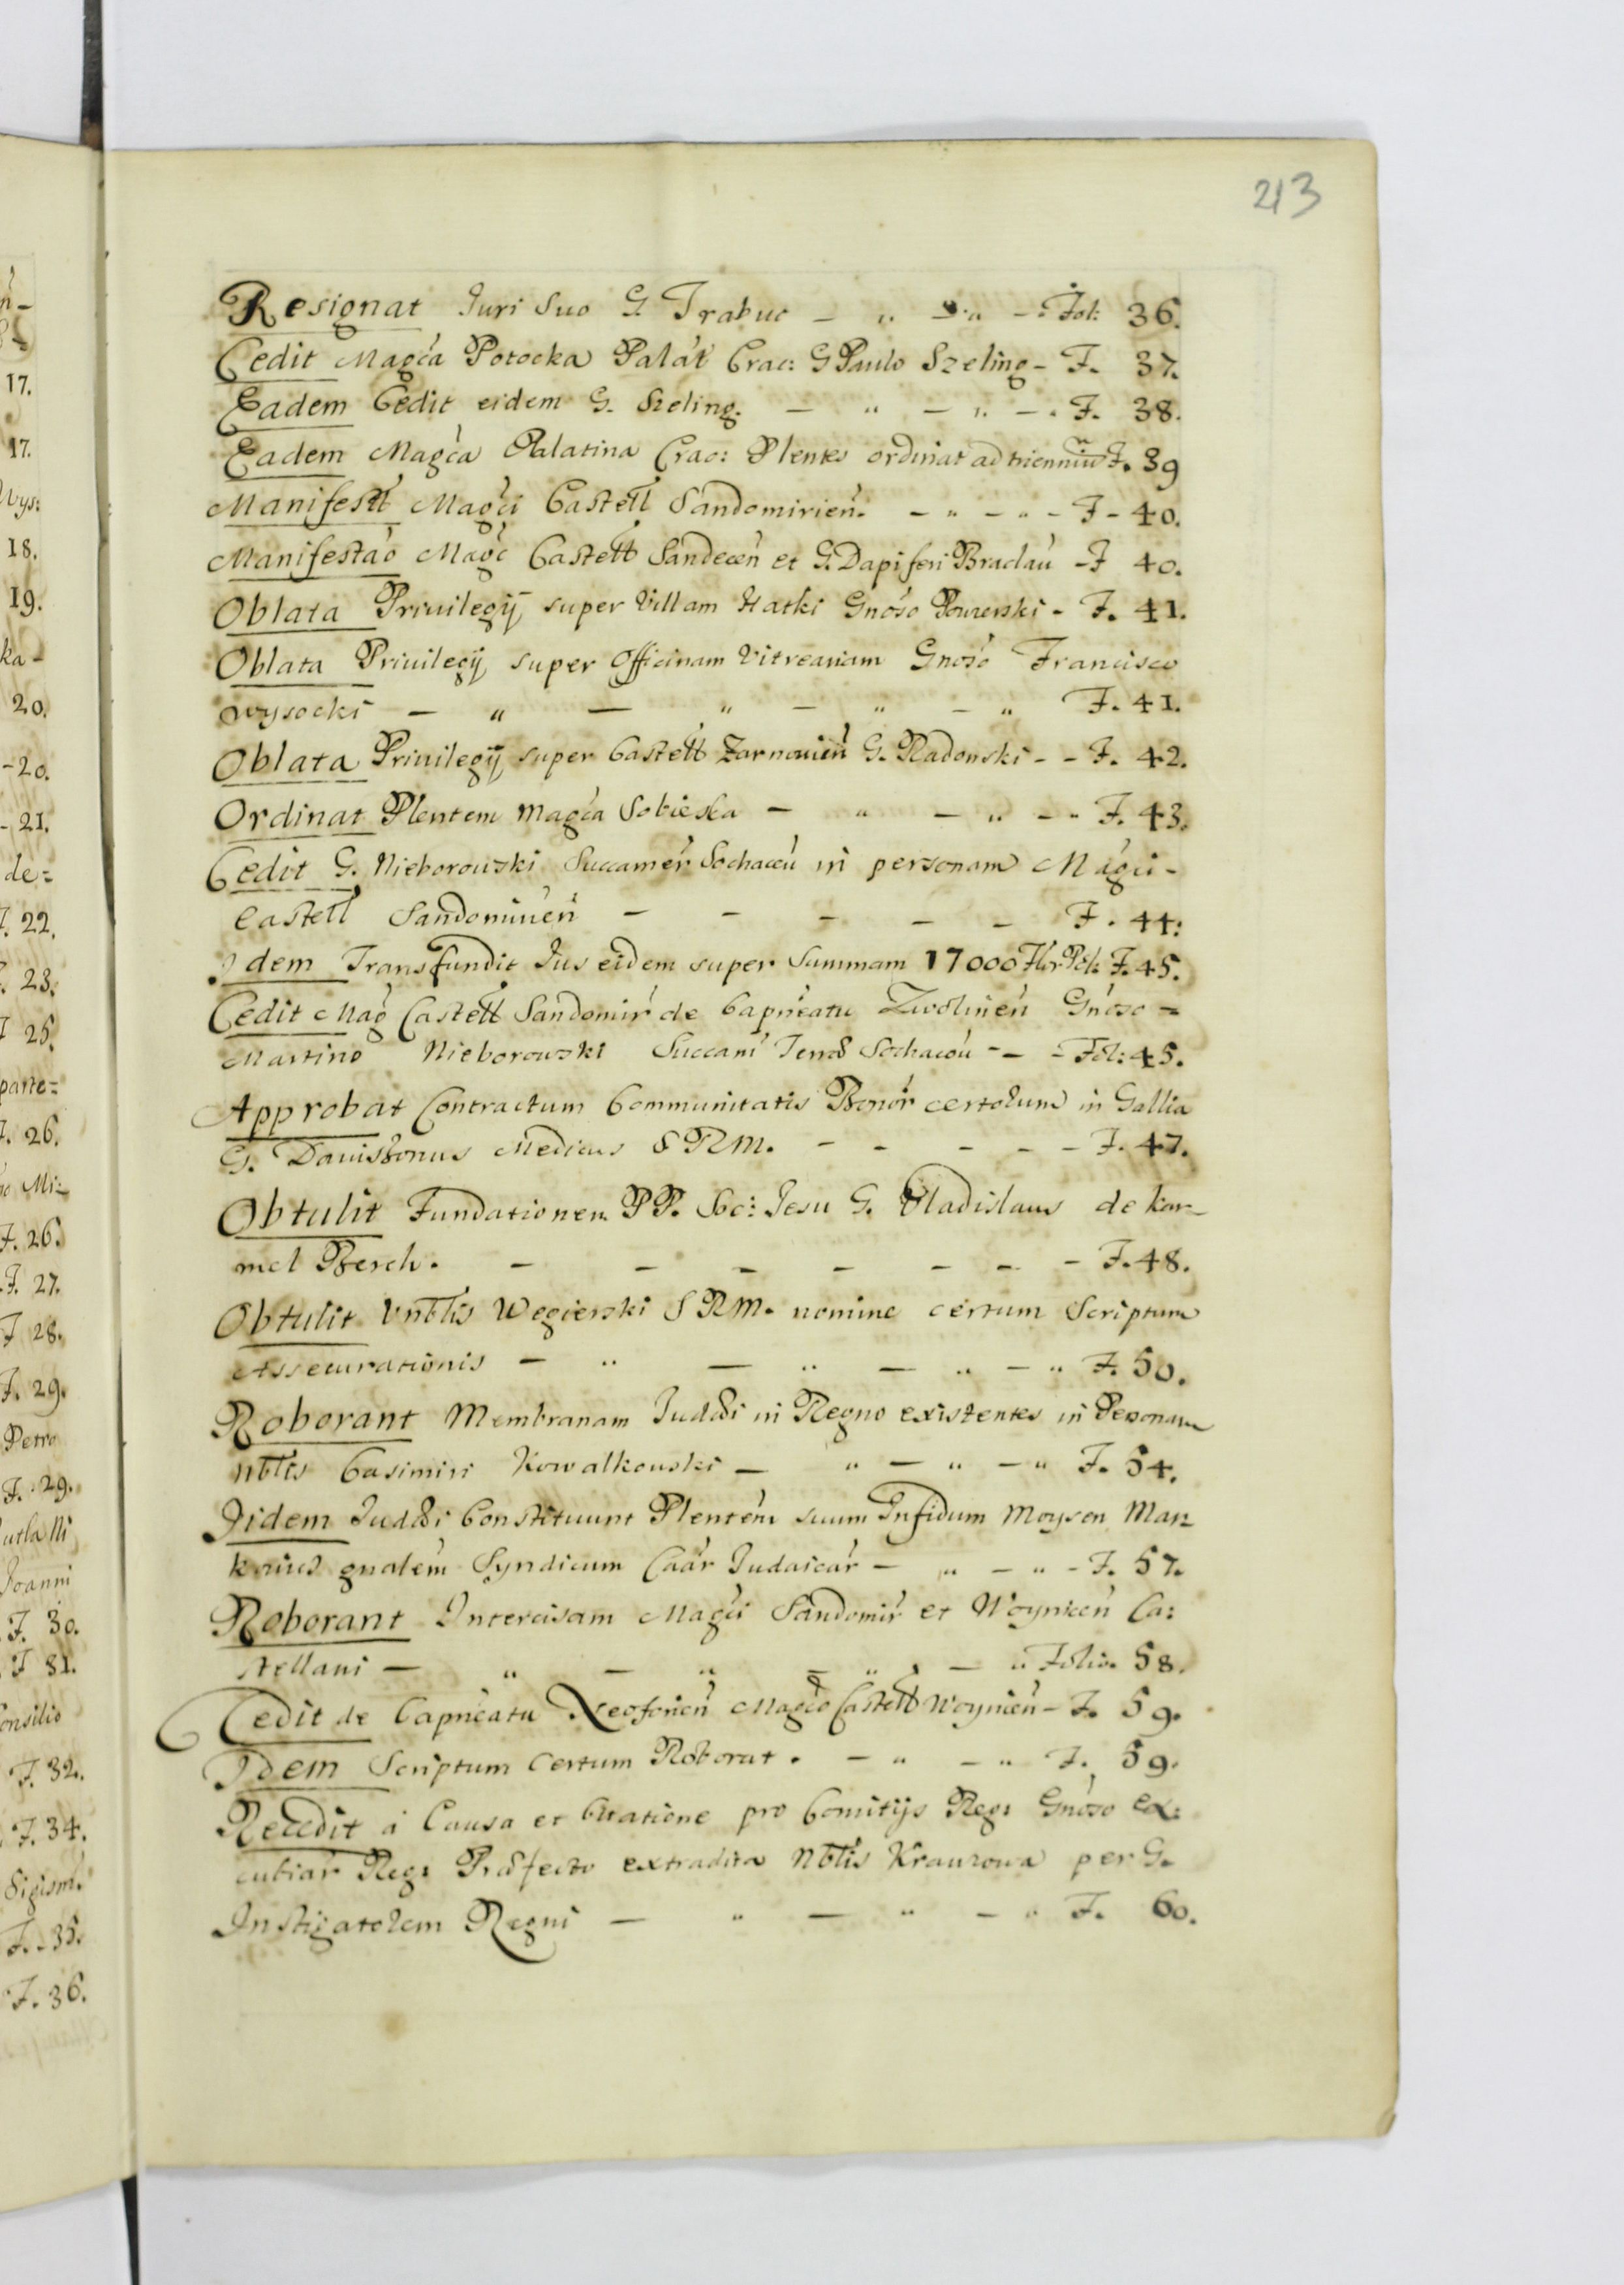 213
Resignat Juri Suo G. Trabuc - " - " - : Fol: 36.
Cedit Magća Potocka Palát Crac: G Paulo Szeling - F. 37.
Eadem Cedit eidem G. Szeling. - " - " - . F. 38.
Eadem Magća Palatina Crac: Plentes ordinat ad trienniū F. 39
Manifestt Magći Castell Sandomirień. - " - " - F - 40.
Manifestaó Magć Castell Sandeceń et G. Dapiferi Braclaú - F 40.
Oblata Priuilegij super Villam Hatki Gnoso - F. 41.
Oblata Priuilegij super Officinam Vitreariam Gnoso Francisco
Wysocki - " - " - " - " F. 41.
Oblata Priuilegij super Castell Zarnouień G. Radonski - - F. 42.
Ordinat Plentem Magća Sobieska - " - " - " F. 43.
Cedit G. Nieborowski Succamér Sochaceú in personam Mágci -
Castell Sandomirień - - - - - F. 44:
Idem Transfundit Jus eidem super Summam 17000 Flor Pol: F. 45.
Cedit Mag Castell Sandomir de Capneatu Zwolinień Gnoso =
Martino Nieborowski Succam Terrae Sochaceú - - - Fol: 45.
Approbat Contractum Communitatis Bonór certorum in Gallia
G. Dauissonus Medicus S R M. - - - - - F. 47.
Obtulit Fundationem PP. Soc: Jesu G. Vladislaus de kar-
mel Bersch. - - - - - - - F. 48.
Obtulit Vnbtlis Wegierski S R M. nomine certum Scriptum
Assecurationis - " - " - " - " F. 50.
Roborant Membranam Judaei in Regno existentes in Personam
nbtlis Casimiri Kowalkouski - " - " - " F. 54.
Jidem Judaei Constituunt Plentém suum Infidum Moysen Mar-
gnalém Syndicum Caár Judaicár - " - " - F. 57.
Roborant Intercisam Magći Sandomir et Woyniceń Ca:
stellani - " - " - " - " Folio. 58.
Cedit de Capnéatu Magćo Castell Woyniceń - F. 59.
Idem Scriptum Certum Roborat. - " - " F. 59.
Recedit á Causa et Citatione pro Comitijs Reg: Gnoso ex:
cubiár Reg: Praefecto extradita Nbtlis Krauzowa per G.
Instigatorem Regni - " - " - " F. 60.